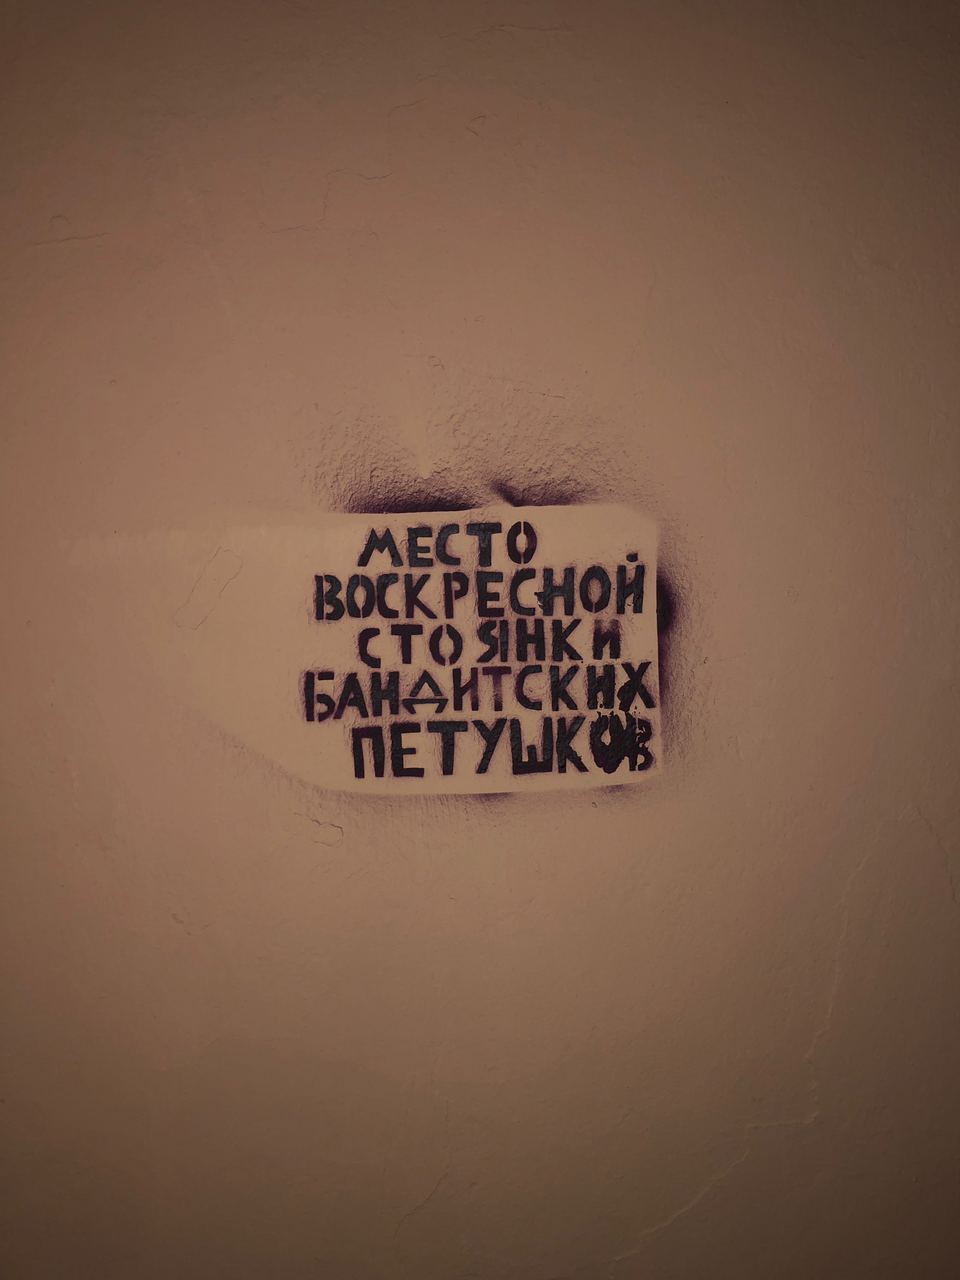 МЕСТО
ВОСКРЕСНОЙ
СТОЯНКИ
БАНДИТСКИХ
ПЕТУШКОВ